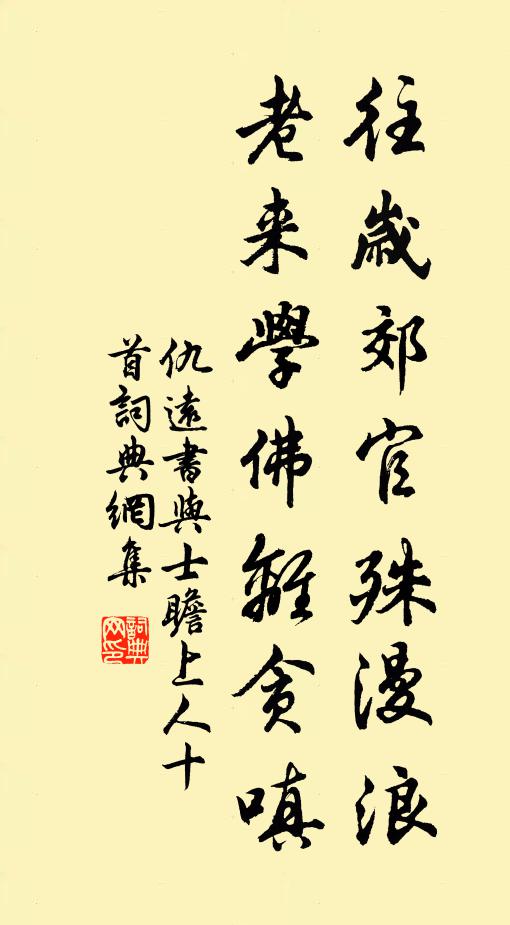 往歲郊官殊漫浪
老来學佛離貪嗔
仇遠書與士瞻上人十
首詞典網集
詞典网印